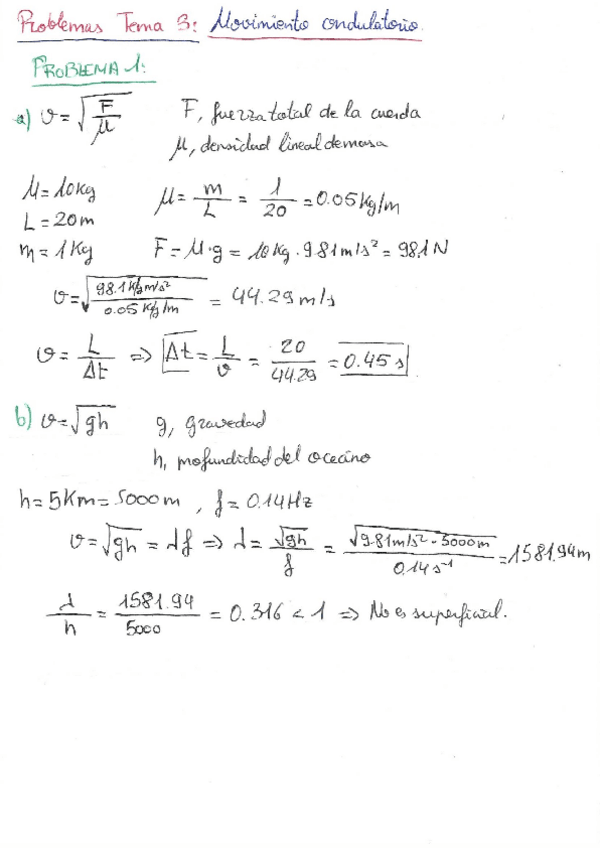 Problemas Tema 3: Movimiento ondulatorio.
PROBLEMA 1:
a) v = √(F/μ) F, fuerza total de la cuerda
μ, densidad lineal de masa
M = 10 kg μ = m/L = 1/20 = 0.05 kg/m
L = 20 m
m = 1 kg F = M·g = 10 kg · 9.81 m/s² = 98.1 N
v = √(98.1 kg m/s² / 0.05 kg/m) = 44.29 m/s
v = L/Δt => Δt = L/v = 20/44.29 = 0.45 s
b) v = √gh g, gravedad
h, profundidad del oceáno
h = 5 Km = 5000 m , f = 0.14 Hz
v = √gh = λf => λ = √gh/f = √(9.81 m/s² · 5000 m)/0.14 s⁻¹ = 1581.94 m
λ/h = 1581.94/5000 = 0.316 < 1 => No es superficial.